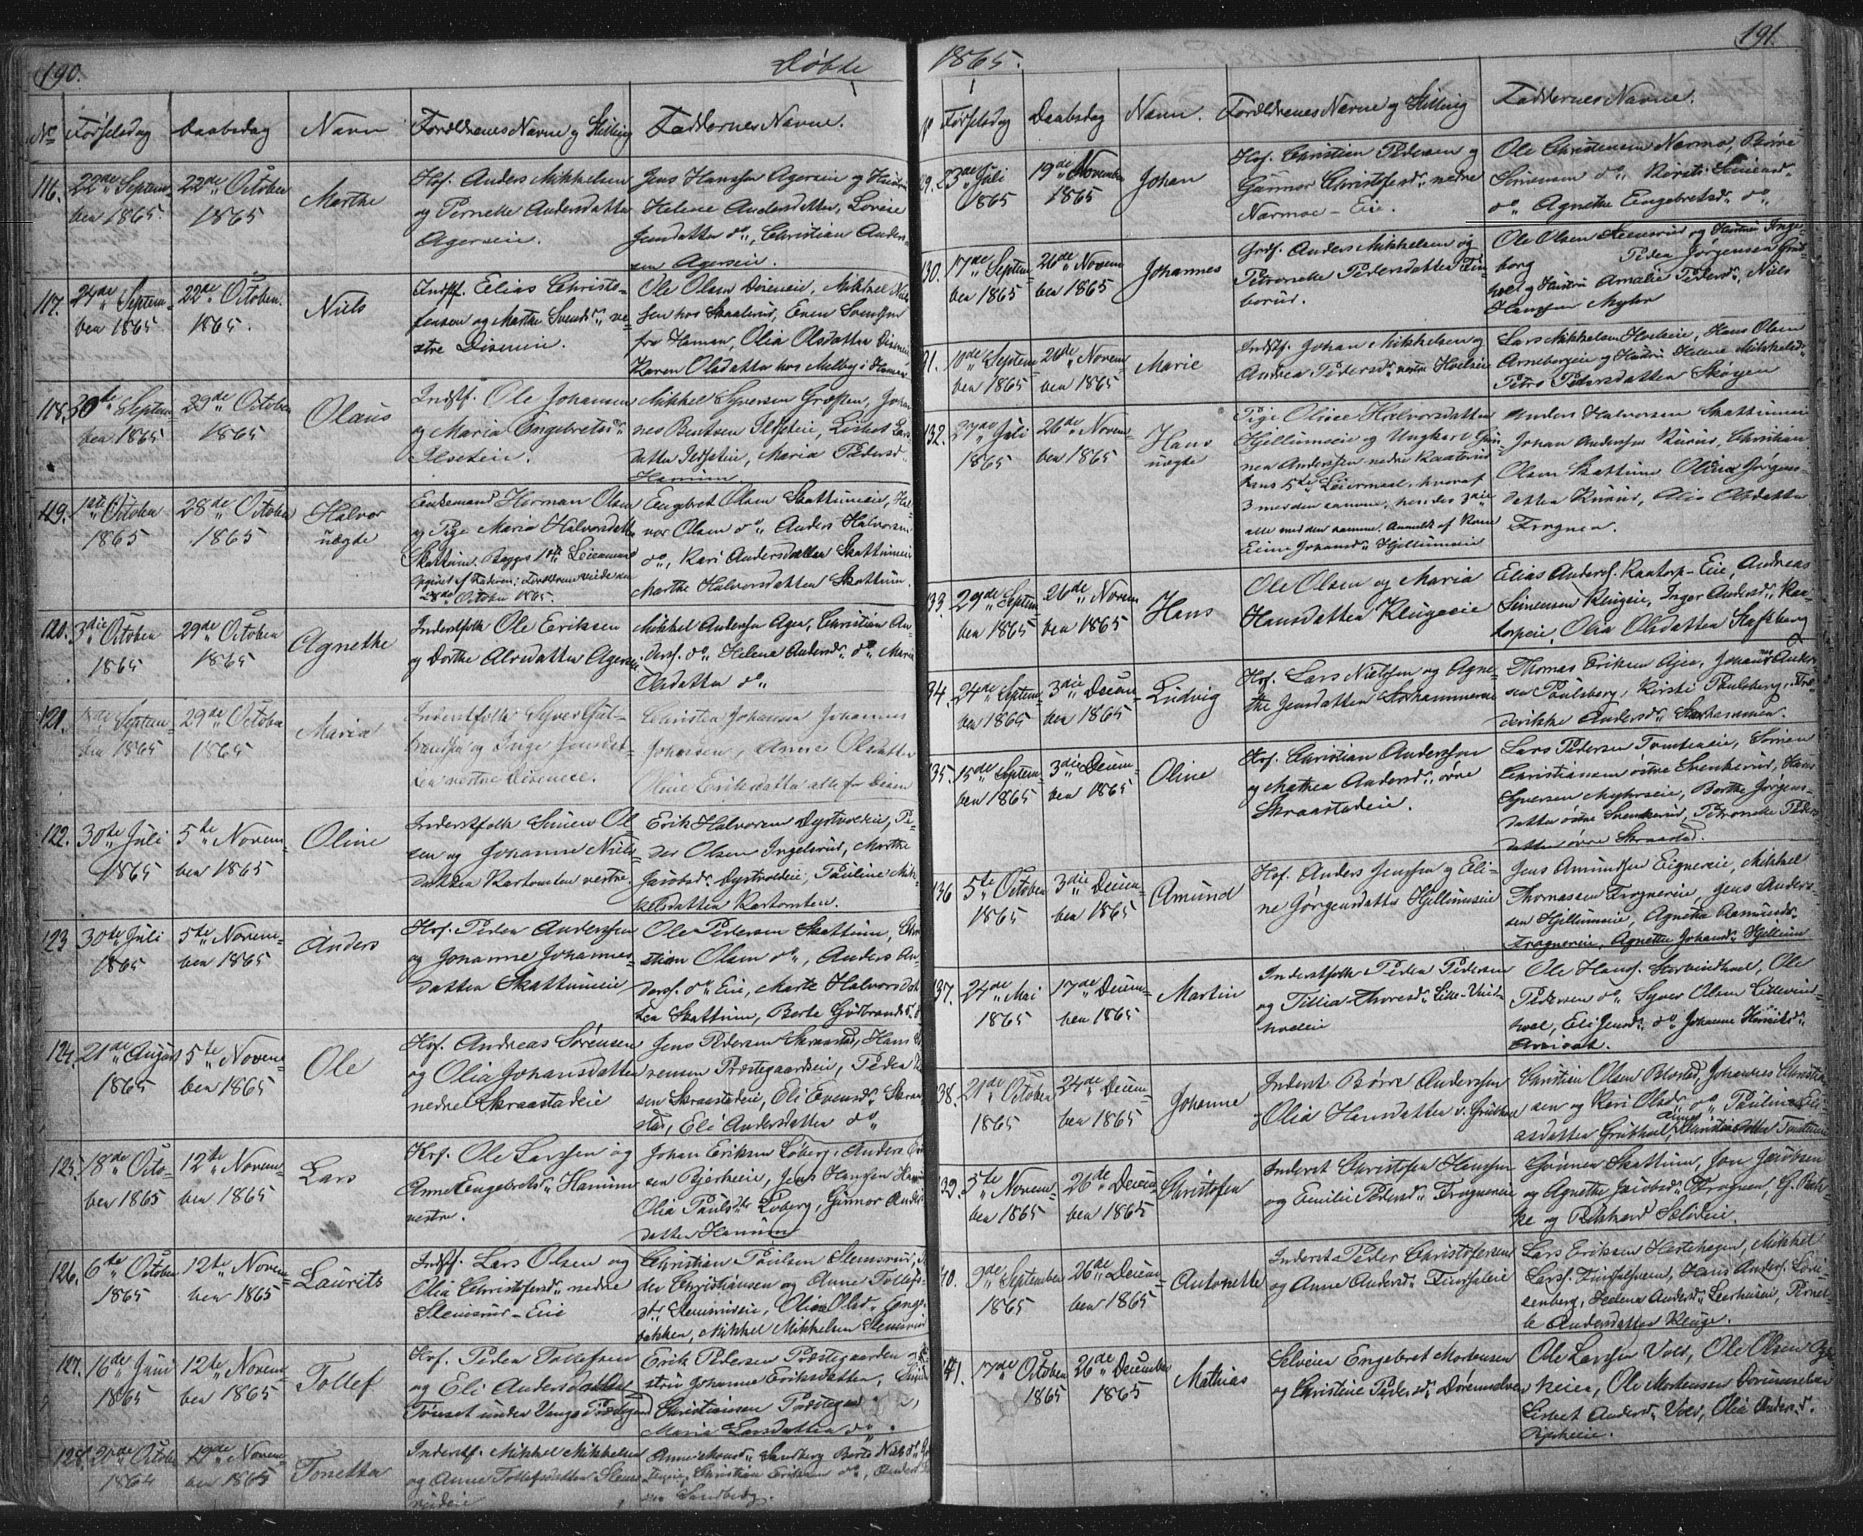 190.
Døbte
No
Fødselsdag
Daabsdag
Navn
Forældrenes Navne og Stilling
Faddernes Navne.
116.
22de Septem-
ber 1865.
22de October
1865
Marthe
Hsf. Anders Mikkelsen
og Pernelle Andersdatter
Agerseie.
Jens Hanssen Agerseie og Hustru
Helene Andersdatter, Lovise
Jensdatter do, Christian Anders-
sen Agerseie.
117.
24de Septem-
ber 1865
22de October.
1865.
Niels
Indstf. Elias Christo-
fersen og Marthe Svendsd. ve-
stre Disereie.
Ole Olsen Disereie, Mikkel Niel-
sen hos Skaalerud, Even Svensen
fra Hamar, Olia Olsdatter Diseneie
Karen Olsdatter hos Melby i Hamar
118.
20de Septem-
ber 1865
29de October
1865
Olaus
Indstf. Ole Johansen
og Maria Engebretsd.
Ilseteie.
Mikkel Syversen Græsten, Johan-
nes Berntsen Ilseteie, Lisbet Lars-
datter Ilseteie, Maria Pedersd.
Hamum
119.
1ste October
1865
28de October
1865
Halvor
uægte
Enkemand Herman Olsen
og Pige Maria Halvorsdatter
Skattum. Begges 1ste Leiermaal
28de October 1865.
Engebret Olsen Skattumeie, Hal-
vor Olsen do, Anders Halvorsen
do, Kari Andersdatter Skattumeie
Marthe Halvorsdatter Skattum.
120.
3die October
1865
29de October
1865
Agnethe
Inderstfolk Ole Eriksen
og Dorthe Alvsdatter Agerseie
Mikkel Andersen Ager, Christian An-
dersf. do, Helene Andersd. do, Maria
Olsdatter do
121.
Septem-
ber 1865
29de October
1865
Maria
Inderstfolk Syver Gul-
brandsen og Inge Jonsdat-
ter vestre Diseneie.
Christen Johansen Johannes
Johansen, Anne Olsdatter
Oline Eriksdatter alle fra Disen
122.
30te Juli
1865
5te Novem-
ber 1865
Oline
Inderstfolk Simen Ol-
sen og Johanne Niels-
datter Kartomten vestre
Erik Halvorsen Dystvoldeie, Pe-
der Olsen Ingelsrud, Marthe
Jacobsd. Dystvoldeie, Pauline Mik-
kelsdatter Kartomten.
123
30te Juli
1865
5te Novem-
ber 1865
Anders
Hsf. Peder Anderssen
og Johanne Johannes-
datter Skattumeie
Ole Pedersen Skattum, Chri-
stian Olsen do, Anders An-
dersf. do Eie, Marte Halvorsdat-
ter Skattum, Berte Gulbrandsd. do
124.
21de August
1865
5te Novem-
ber 1865
Ole
Hsf. Andreas Sørensen
og Olia Johansdatter
nedre Skraastadeie
Jens Pedersen Skraastad, Hans
rensen Præstegaardseie, Peder
sen Skraastadeie, Eli Evensd. Skraa-
stad, Eli Andersdatter do
125.
18de Octo-
ber 1865
12te Novem-
ber 1865
Lars
Hsf. Ole Larssen og
Anne Engebretsd. Hamum
vestre.
Johan Eriksen Løberg, Anders
sen Bjerkeeie, Jens Hansen
Olia Paulsdtr Løberg, Gunnor Anders-
datter Hamum
126.
6te October
1865
12te Novem-
ber 1865
Laurits
Indstf. Lars Olsen og
Olia Christofersd. nedre
Stensrud-Eie
Christian Poulsen Stensrud,
der Christiansen og Anne Tollefs-
dtr Stensrudeie, Olia Olsd. Enge-
bakken, Mikkel Mikkelsen Stensrud
127.
16de Juni
1865
12te Novem-
ber 1865
Tollef
Hsf. Peder Tollefsen
og Eli Andersdatter
under Vangs Præstegaard
Erik Pedersen Præstegaarden
Johanne Eriksdatter,
Christiansen Præstegd
Maria Larsdatter do
128.
20de October
1864
19de Novem-
ber 1865
Tonetta
Inderstf. Mikkel Mikkelsen
og Anne Tollefsdatter Stens-
rudeie
Sandberg
Christian Eriksen do, Anders
Sandberg.
1865.
191.
Fødselsdag
Daabsdag
Navn.
Forældrenes Navne og Stilling
Faddernes Navne.
29.
23de Juli
1865
19de November
1865
Johan
Hsf. Christian Pedersen og
Gunnor Christofersd. nedre
Narmoe-Eie.
Ole Christensen Narmo, Børre
Simensen do, Kirsti Simensd.
do, Agnethe Engebretsd. do,
130.
17de Septem-
ber 1865
26de Novem
ber 1865
Johannes
Grdf. Anders Mikkelsen og
Petronelle Pedersdatter Fin-
borud.
Ole Olsen Stensrud og Hustru Inge-
borg Peder Jørgensen Grut-
hol og Hustru Amalie Pedersd. Niels
Hanssen Myhr
31.
10de Septem-
ber 1865
26de Novem
ber 1865
Marie
Indstf. Johan Mikkelsen og
Andrea Pedersd. vestre Hoelseie
Lars Mikkelsen Hoelseie, Hans Olsen
Arneborgeie og Hustru Helene Mikkelsd.
Petro Pedersdatter Skogen
132.
27de Juli
1865
26de Novem-
ber 1865
Hans
uægte
Pige Oline Halvorsdatter
Hjellumseie og Ungkarl Gun-
ner Andersen nedre Kaaterud
hans 5te Leiermaal, hvoraf
3 med den samme, hendes 3die
alle med den samme. Anmeldt af Kone
Eline Johansd. Hjellumseie
Anders Halvorsen Skattumeie
Johan Anderssen Kurud, Christian
Olsen Skattum, Olina Jørgens-
datter Kurud, Alis Alsdatter
Frogner.
133.
29de Septem
ber 1865
26de Novem
ber 1865
Hans
Ole Olsen og Maria
Hansdatter Klugeeie
Elias Andersf. Kaatorp-Eie, Andreas
Simensen Klugeeie, Inger Andersd. Kaa-
torpeie, Olia Olsdatter Hafsberg
34.
24de Septem-
ber 1865
3die Decem-
ber 1865
Ludvig
Hsf. Lars Nielsen og Agne-
the Jensdatter Storhammereie
Thomas Eriksen Ajer, Johannes Ander-
sen Paulsberg, Kirsti Paulsberg, Fre-
derikke Andersd. Storhammer.
35.
15de Septem-
ber 1865
3die Decem-
ber 1865
Oline
Hsf. Christian Anderssen
og Mathea Andersd. øvre
Skraastadeie.
Lars Pedersen Tomtereie, Simen
Christiansen østre Svenkerud, Hans
Syversen Myhrseie, Berthe Jørgens-
datter østre Svenkerud, Petroneke Peders-
datter øvre Skraastad.
136
5te October
1865
3die Decem-
ber 1865
Amund
Hsf. Anders Jenssen og Eli-
ne Jørgensdatter Hjellumseie
Jens Amundsen Eignereie, Mikkel
Thomassen Frognereie, Jens Anders-
sen Hjellumseie, Agnethe Asmundsd.
Frognereie, Agnethe Johansd. Hjellum
137.
24de Mai
1865
17de Decem-
ber 1865
Martin
Inderstfolk Peder Pedersen
og Tillia Thoresd. Lille-Vind-
hvoleie
Ole Hansf. Storvindhvol, Ole
Pedersen do, Syver Olsen Lillevind-
hvol, Eli Jensd. do, Johanne
38.
21de October
1865
24de Decem-
ber 1865
Johanne
Inderst Børre Anderssen
og Olia Hansdatter v. Gruthol
Christian Olsen Blæstad, Johannes Christian-
sen og Kari Olsd. do, Pauline Eli-
asdatter Gruthol,
39.
5te Novem-
ber 1865
26de Decem-
ber 1865
Christofer
Inderst Christofer Hanssen
og Emilie Pedersd. Frognereie
Gunner Skattum, Jon Jacobsen
og Agnethe Jacobsd. Frogner, G. Bak-
ke og Rikkard Sælideie.
40.
9de September
1865
26de Decem-
ber 1865
Antonette
Inderst Peder Christofersen
og Anne Andersd. Finsaleie
Lars Eriksen Hestehagen, Mikkel
Larsf. Finsalseien, Hans Andersf. Lovi-
senberg, Helena Andersd. Leerhuseie, Pernel-
le Andersdatter Kluge.
41.
17de October
1865
26de December
1865
Mathias
Selveier Engebret Mortensen
og Christine Pedersd. Dørumselven
Ole Larssen Vold, Ole Olsen
Ole Mortensen Dørumselven
Lisbet Andersd. Vold, Olia Andersd.